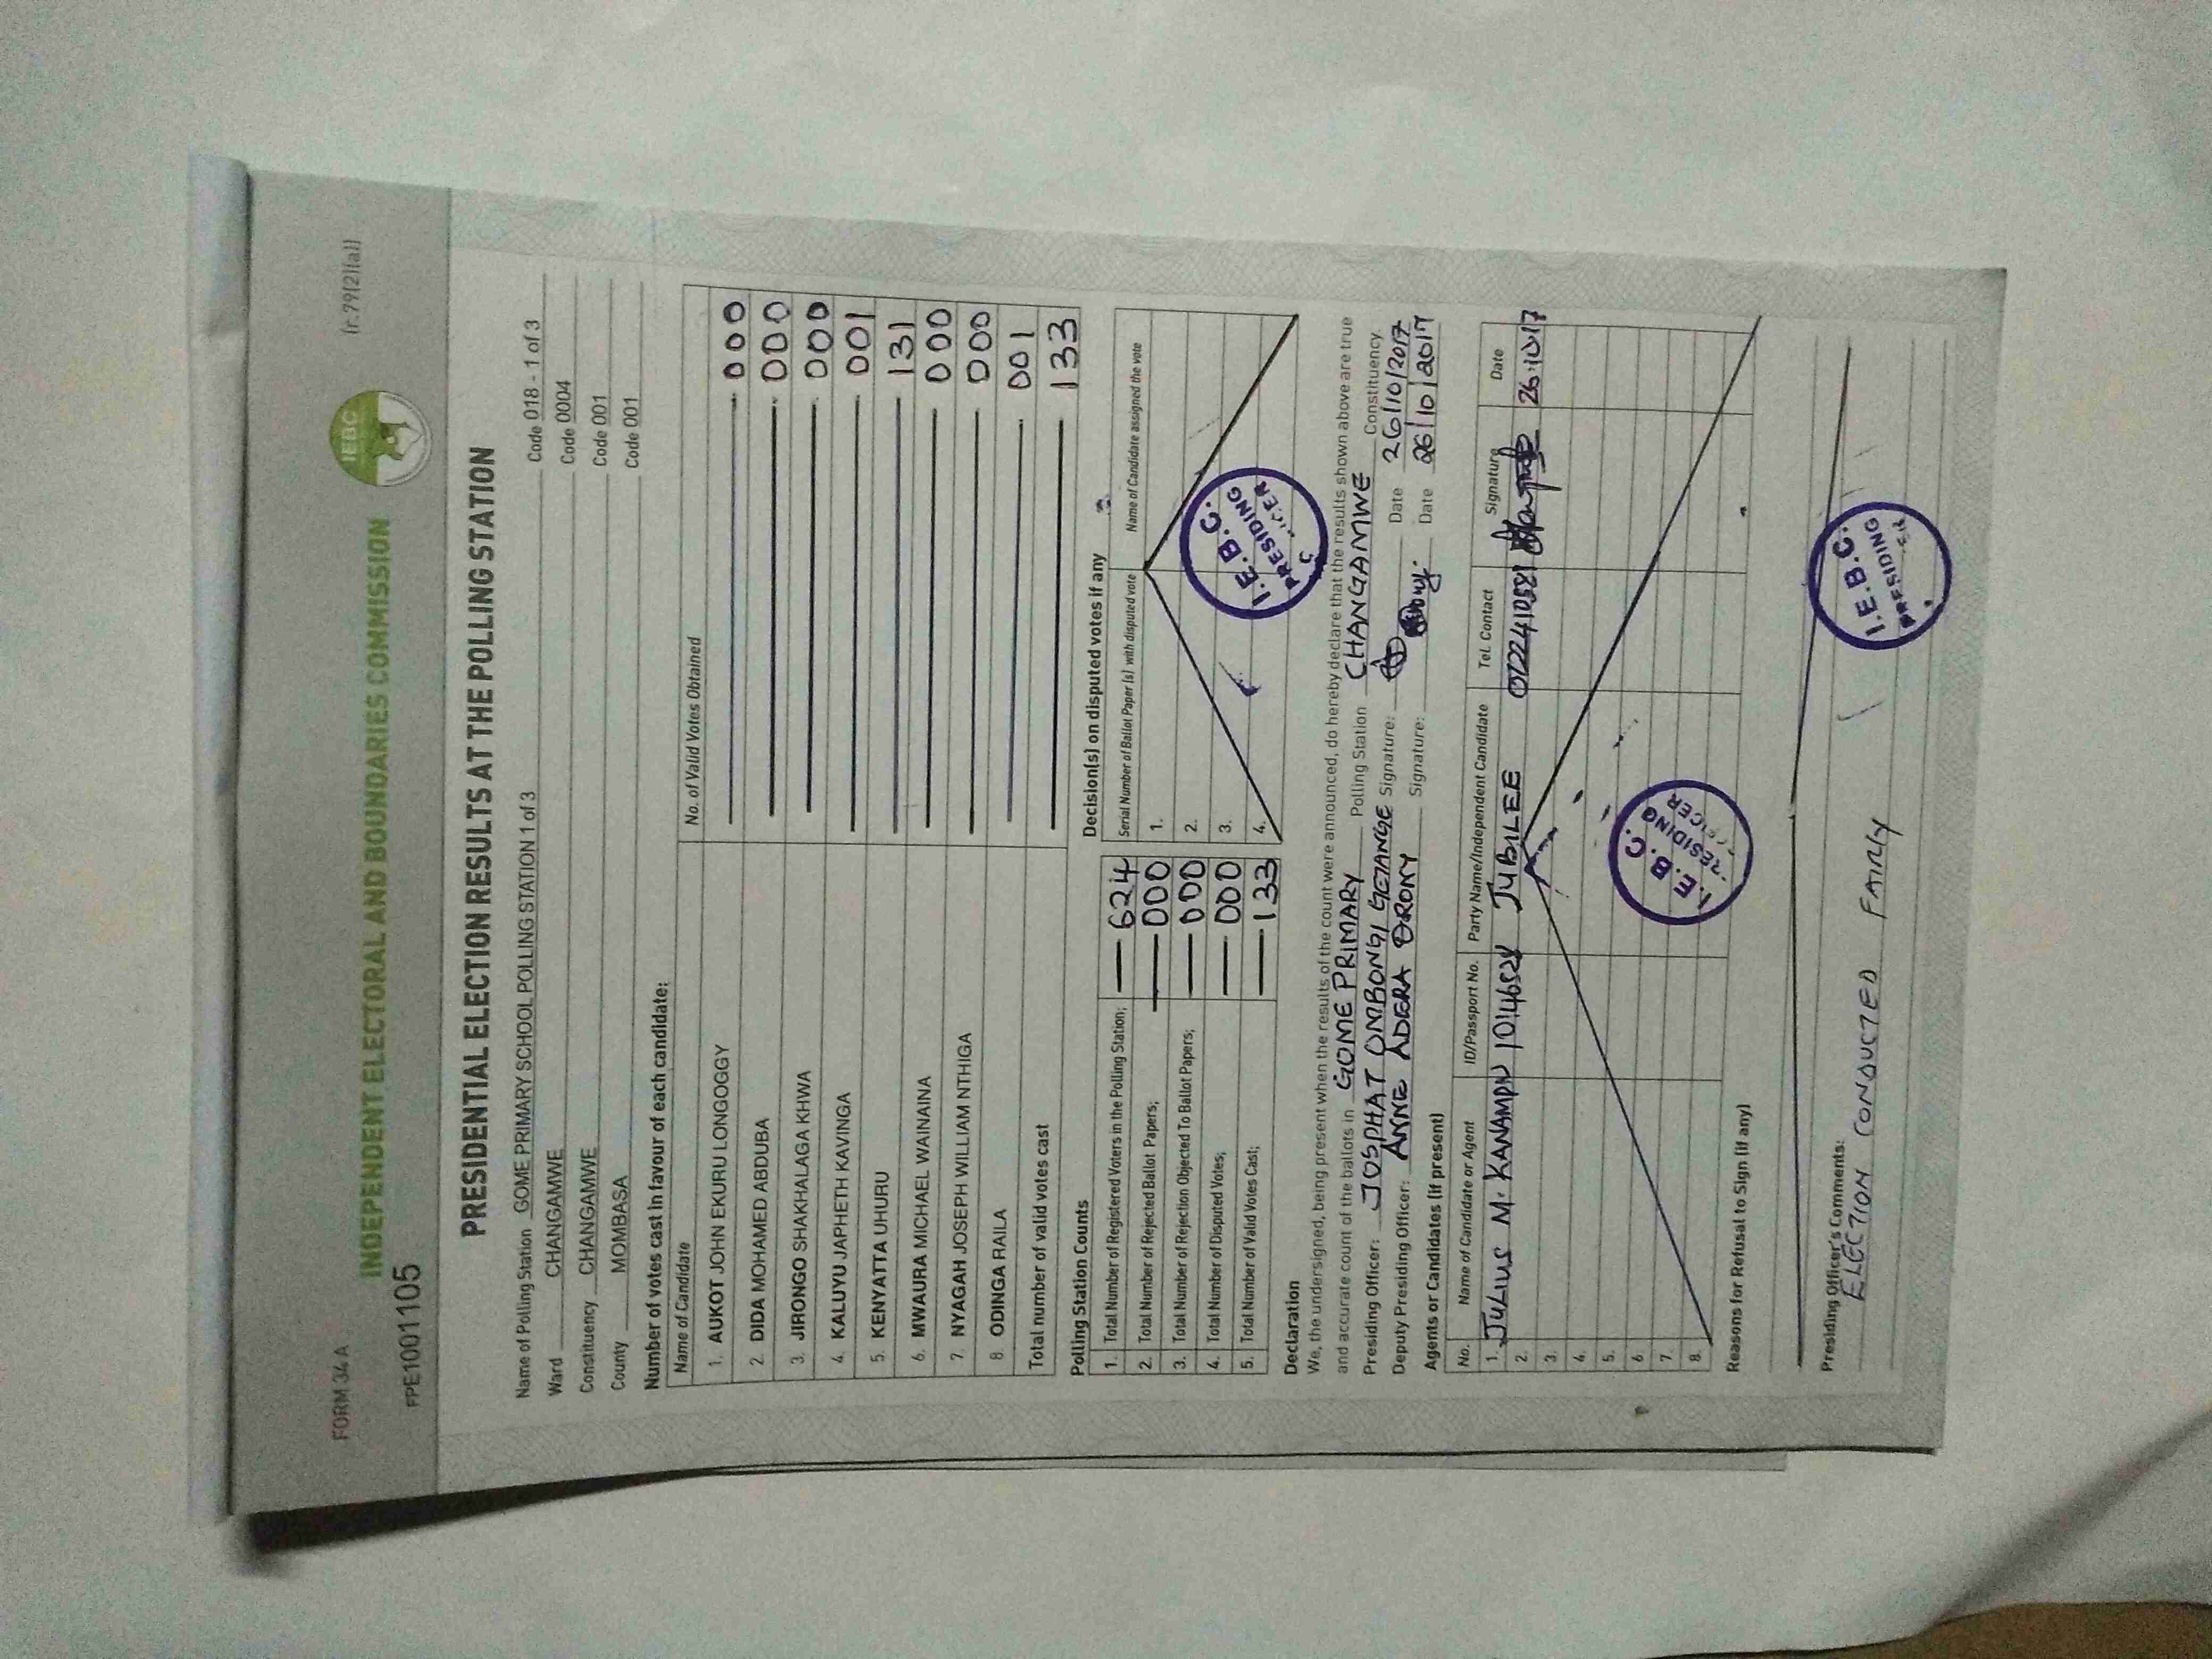 FORM 34 A
(r.79(2)(a))
IEBC
INDEPENDENT ELECTORAL AND BOUNDARIES COMMISSION
FPE1001105
PRESIDENTIAL ELECTION RESULTS AT THE POLLING STATION
Name of Polling Station GOME PRIMARY SCHOOL POLLING STATION 1 of 3 Code 018 - 1 of 3
Ward CHANGAMWE Code 0004
Constituency CHANGAMWE Code 001
County MOMBASA Code 001
Number of votes cast in favour of each candidate:
Name of Candidate No. of Valid Votes Obtained
1. AUKOT JOHN EKURU LONGOGGY 000
2. DIDA MOHAMED ABDUBA 000
3. JIRONGO SHAKHALAGA KHWA 000
4. KALUYU JAPHETH KAVINGA 001
5. KENYATTA UHURU 131
6. MWAURA MICHAEL WAINAINA 000
7. NYAGAH JOSEPH WILLIAM NTHIGA 000
8. ODINGA RAILA 001
Total number of valid votes cast 133
Polling Station Counts
1. Total Number of Registered Voters in the Polling Station; 624
2. Total Number of Rejected Ballot Papers; 000
3. Total Number of Rejection Objected To Ballot Papers; 000
4. Total Number of Disputed Votes; 000
5. Total Number of Valid Votes Cast; 133
Decision(s) on disputed votes if any
Serial Number of Ballot Paper (s) with disputed vote Name of Candidate assigned the vote
1.
2.
3.
4.
I.E.B.C.
PRESIDING
Declaration
We, the undersigned, being present when the results of the count were announced, do hereby declare that the results shown above are true
and accurate count of the ballots in GOME PRIMARY Polling Station CHANGAMWE Constituency.
Presiding Officer: JOSPHAT OMBONGI Signature: Date 26/10/2017
Deputy Presiding Officer: ANNE ADERA Signature: Date 26/10/2017
Agents or Candidates (if present)
No. Name of Candidate or Agent ID/Passport No. Party Name/Independent Candidate Tel. Contact Signature Date
1. JULIUS M. JUBILEE 26.10.17
2.
3.
4.
5.
6.
7.
8.
I.E.B.C.
PRESIDING
OFFICER
Reasons for Refusal to Sign (if any)
Presiding Officer's Comments:
ELECTION CONDUCTED FAIRLY
I.E.B.C.
PRESIDING